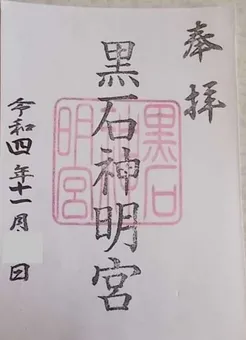 奉拝
黒石神明宮
黒石神明宮
令和四年十一月 日